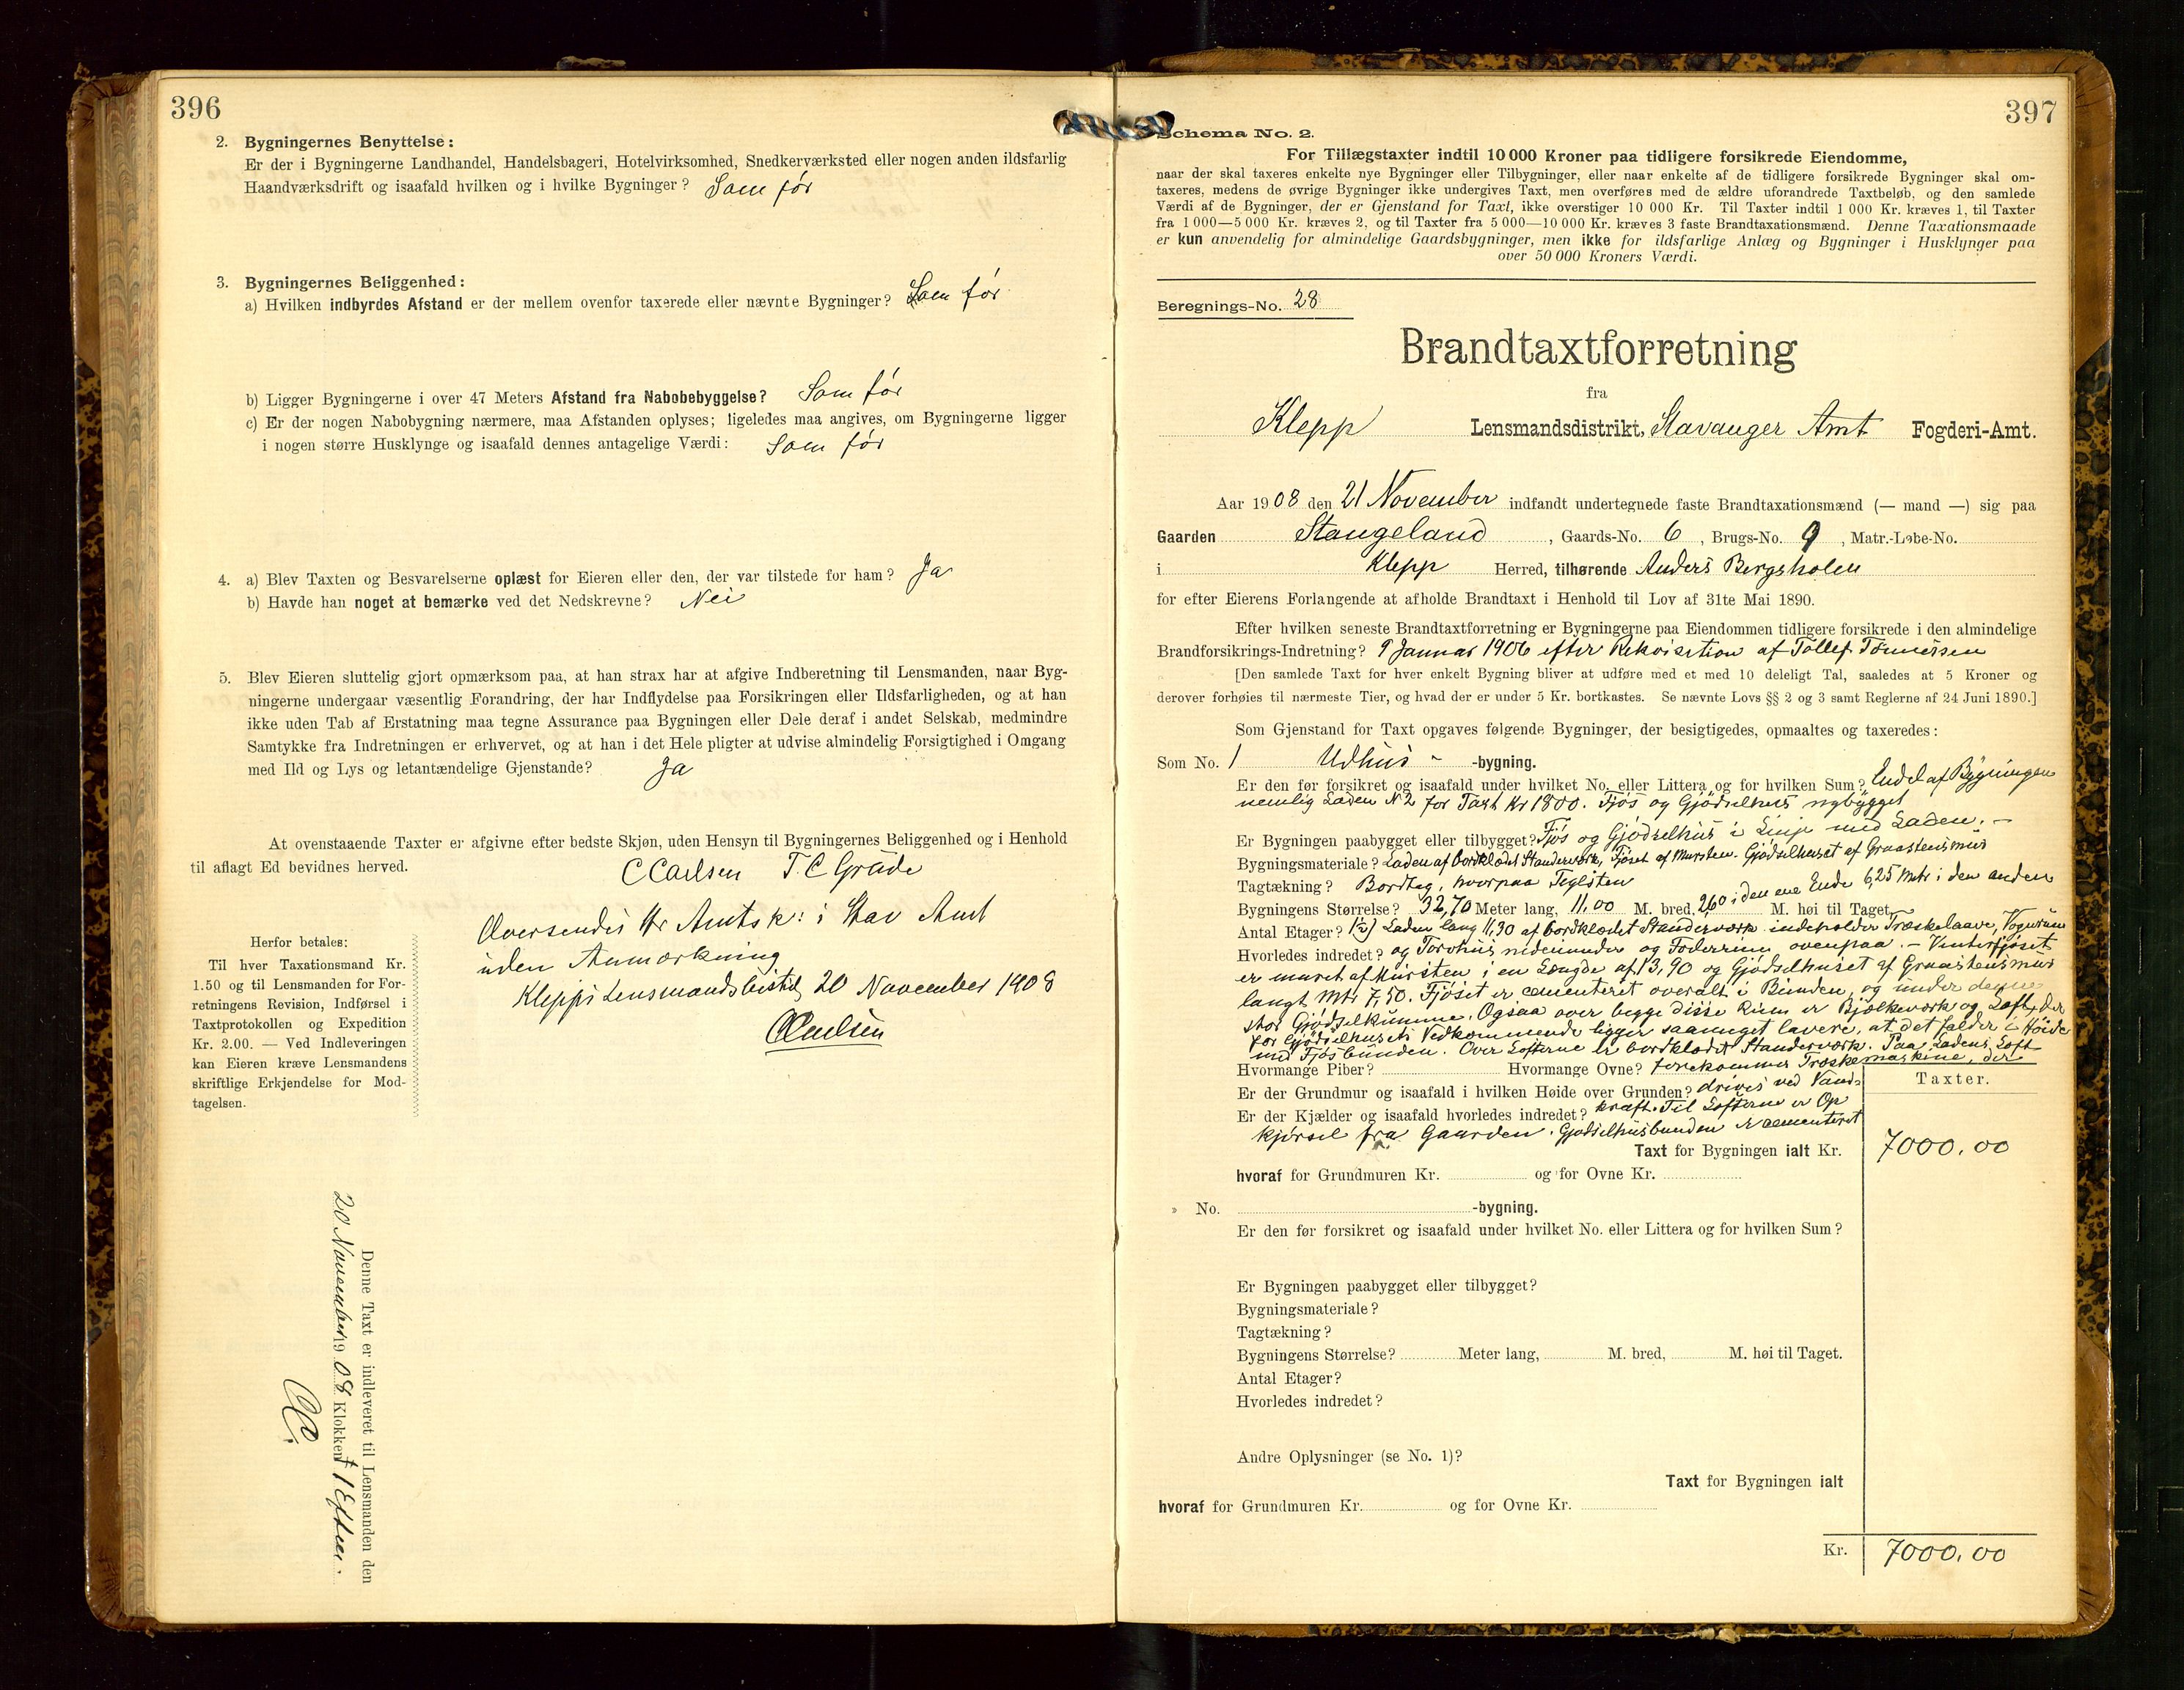 396
2. Bygningernes Benyttelse:
Er der i Bygningerne Landhandel, Handelsbageri, Hotelvirksomhed, Snedkerværksted eller nogen anden ildsfarlig
Haandværksdrift og isaafald hvilken og i hvilke Bygninger? Som før
3. Bygningernes Beliggenhed:
a) Hvilken indbyrdes Afstand er der mellem ovenfor taxerede eller nævnte Bygninger? Som før
b) Ligger Bygningerne i over 47 Meters Afstand fra Nabobebyggelse? Som før
c) Er der nogen Nabobygning nærmere, maa Afstanden oplyses; ligeledes maa angives, om Bygningerne ligger
i nogen større Husklynge og isaafald dennes antagelige Værdi: Som før
4. a) Blev Taxten og Besvarelserne oplæst for Eieren eller den, der var tilstede for ham? Ja
b) Havde han noget at bemærke ved det Nedskrevne? Nei
5. Blev Eieren sluttelig gjort opmærksom paa, at han strax har at afgive Indberetning til Lensmanden, naar Byg-
ningerne undergaar væsentlig Forandring, der har Indflydelse paa Forsikringen eller Ildsfarligheden, og at han
ikke uden Tab af Erstatning maa tegne Assurance paa Bygningen eller Dele deraf i andet Selskab, medmindre
Samtykke fra Indretningen er erhvervet, og at han i det Hele pligter at udvise almindelig Forsigtighed i Omgang
med Ild og Lys og letantændelige Gjenstande? Ja
At ovenstaaende Taxter er afgivne efter bedste Skjøn, uden Hensyn til Bygningernes Beliggenhed og i Henhold
til aflagt Ed bevidnes herved. C Carlsen T. C Grude
Oversendes Hr Amtsk: i Stav Amt
uden Anmærkning
Klepps Lensmandsbestil, 20 November 1908
Herfor betales:
Til hver Taxationsmand Kr.
1.50 og til Lensmanden for For-
retningens Revision, Indførsel i
Taxtprotokollen og Expedition
Kr. 2.00. — Ved Indleveringen
kan Eieren kræve Lensmandens
skriftlige Erkjendelse for Mod-
tagelsen.
Denne Taxt er indleveret til Lensmanden den
20 November 1908 Klokken 1 Efterm.
397
Schema No. 2.
For Tillægstaxter indtil 10 000 Kroner paa tidligere forsikrede Eiendomme,
naar der skal taxeres enkelte nye Bygninger eller Tilbygninger, eller naar enkelte af de tidligere forsikrede Bygninger skal om-
taxeres, medens de øvrige Bygninger ikke undergives Taxt, men overføres med de ældre uforandrede Taxtbeløb, og den samlede
Værdi af de Bygninger, der er Gjenstand for Taxt, ikke overstiger 10 000 Kr. Til Taxter indtil 1 000 Kr. kræves 1, til Taxter
fra 1 000—5 000 Kr. kræves 2, og til Taxter fra 5 000—10 000 Kr. kræves 3 faste Brandtaxationsmænd. Denne Taxationsmaade
er kun anvendelig for almindelige Gaardsbygninger, men ikke for ildsfarlige Anlæg og Bygninger i Husklynger paa
over 50 000 Kroners Værdi.
Beregnings-No. 28
Brandtaxtforretning
fra
Klepp Lensmandsdistrikt, Stavanger Amt Fogderi-Amt.
Aar 1908 den 21 November indfandt undertegnede faste Brandtaxationsmænd (— mand —) sig paa
Gaarden Stangeland, Gaards-No. 6, Brugs-No. 9, Matr.-Løbe-No.
i Klepp Herred, tilhørende Anders Bergsholen
for efter Eierens Forlangende at afholde Brandtaxt i Henhold til Lov af 31te Mai 1890.
Efter hvilken seneste Brandtaxtforretning er Bygningerne paa Eiendommen tidligere forsikrede i den almindelige
Brandforsikrings-Indretning? 9 Januar 1906 efter Rekvisition af Tollef Tønnessen
[Den samlede Taxt for hver enkelt Bygning bliver at udføre med et med 10 deleligt Tal, saaledes at 5 Kroner og
derover forhøies til nærmeste Tier, og hvad der er under 5 Kr. bortkastes. Se nævnte Lovs §§ 2 og 3 samt Reglerne af 24 Juni 1890.]
Som Gjenstand for Taxt opgaves følgende Bygninger, der besigtigedes, opmaaltes og taxeredes:
Som No. 1 Udhus- -bygning.
Er den før forsikret og isaafald under hvilket No. eller Littera og for hvilken Sum? Endel af Bygningen
nemlig Laden No 2 for Taxt Kr 1800. Fjøs og Gjødselhus nybygget
Er Bygningen paabygget eller tilbygget? Fjøs og Gjødselhus i Linje med Laden. -
Bygningsmateriale? Laden af bordklædet Standerværk, Fjøset af Mursten. Gjødselhuset af Graastensmur
Tagtækning? Bordtag, hvorpaa Teglsten
Bygningens Størrelse? 32,70 Meter lang, 11,00 M. bred, 2,60 i den ene Ende 6,25 Mtr i den anden M. høi til Taget
Antal Etager? (½) Laden lang 11,30 af bordklædet Standerværk indeholder Træskelaave, Vognrum
Hvorledes indredet? og Torvhus nedeunder og Foderrum ovenpaa. - Vinterfjøset
er muret af Mursten i en Længde af 13,90 og Gjødselhuset af Graastensmur
langt Mtr 7,50. Fjøset er cementeret overalt i Bunden, og under denne
stor Gjødselkumme. Ogsaa over begge disse Rum er Bjelkeværk og Loft, der
for Gjødselhusets Vedkommende ligger saameget lavere, at det falder i Høide
med Fjøsbunden. Over Lofterne er bordklædet Standerværk. Paa Ladens Loft
Hvormange Piber? Hvormange Ovne? forekommer Træskemaskine, der
Er der Grundmur og isaafald i hvilken Høide over Grunden? drives ved Vand-
Er der Kjælder og isaafald hvorledes indredet? kraft. Til Lofterne er Op
kjørsel fra Gaarden. Gjødselhusbunden er cementeret
Taxter.
Taxt for Bygningen ialt Kr. 7000,00
hvoraf for Grundmuren Kr. og for Ovne Kr.
» No. -bygning.
Er den før forsikret og isaafald under hvilket No. eller Littera og for hvilken Sum?
Er Bygningen paabygget eller tilbygget?
Bygningsmateriale?
Tagtækning?
Bygningens Størrelse? Meter lang, M. bred, M. høi til Taget.
Antal Etager?
Hvorledes indredet?
Andre Oplysninger (se No. 1)?
Taxt for Bygningen ialt
hvoraf for Grundmuren Kr. og for Ovne Kr.
Kr. 7000,00